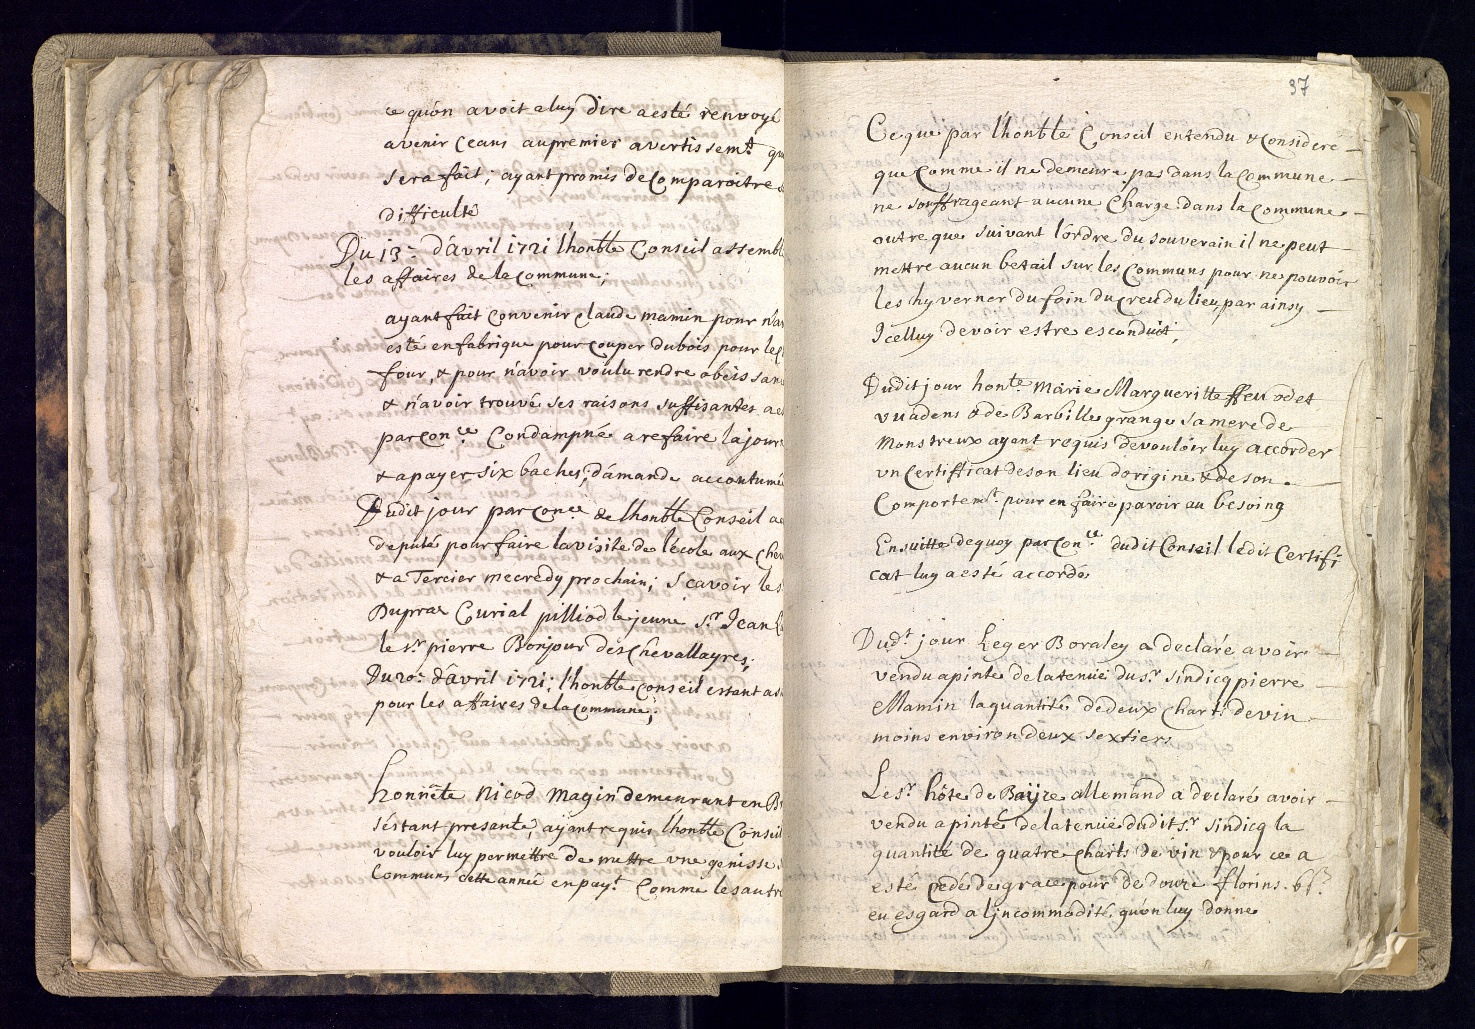 ce qu'on avoit a luy dire a esté renvoyé
avenir ceans au premier avertissem.t
sera fait; ayant promis de Comparoitre
difficulté
Du 13.e d'avril 1721 l'honble Conseil assemblé
les affaires de la Commune;
ayant fait convenir Claude mamin pour
esté en fabrique pour couper du bois pour le
four, & pour n'avoir voulu rendre obeissan
& n'avoir trouvé ses raisons suffisantes a
par Con.ce Condampné a refaire la jour
& a payer six baches; d'amande accoutumé
Dudit jour par Con.ce de l'honble Conseil a
deputé pour faire la visite de l'école aux
& a Tercier mecredy prochain; Scavoir les
Dupraz Curial pilliod le jeune S.r Jean
le s.r pierre Bonjour des Chevallayres;
Du 20.e d'avril 1721; l'honble Conseil estant
pour les affaires de la Commune;
honnéte Nicod Magin demeurant en
s'éstant presanté, ayant requis l'honble Conseil
vouloir luy permettre de mettre une genisse
Communs cette année en pay.t Comme les autre
37
Ce que par l'honble Conseil entendu & Consideré
que Comme il ne demeure pas dans la Commune
ne souffrageant aucune Charge dans la Commune
outre que suivant l'ordre du souverain il ne peut
mettre aucun betail sur les Communs pour ne pouvoir
les hyverner du foin du creu du lieu, par ainsy
Icelluy devoir estre esconduit;
Dudit jour hon.te Marie Margueritte ffeu
vuadens & de Barbille grange sa mere de
Monstreux ayant requis de vouloir luy accorder
un Certifficat de son lieu d'origine & de son
Comportem.t pour en faire paroir au besoing
Ensuitte dequoy par Con.ce dudit Conseil ledit Certifi
cat luy a esté accordé
Dud.t jour Leger Boraley a declaré avoir
vendu a pinte de la tenuë du s.r sindicq pierre
Mamin la quantité de deux Chart. de vin
moins environ deux sextiers
Le s.r hôte de Baÿse allemand a declaré avoir
vendu a pinte de la tenuë dudit s.r sindicq la
quantité de quatre Charts de vin & pour ce a
esté cedé de grace pour de douze florins. 6 s.
eu esgard a l'jncommodité, qu'on luy donne